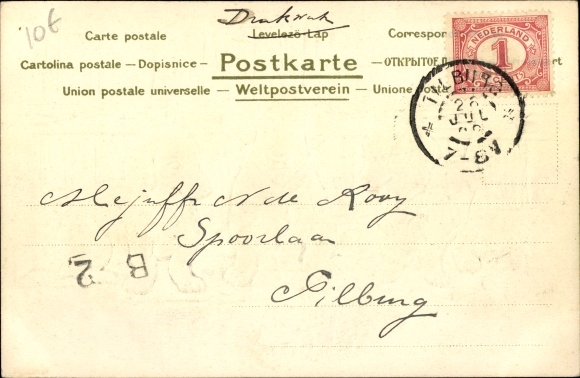 10€
Drukwerk
Carte postale Levelező-Lap Correspon
Cartolina postale — Dopisnice — Postkarte — ОТКРЫТОЕ
Union postale universelle — Weltpostverein — Unione posta
NEDERLAND
1
TILBURG
JUL
Mejuffr N de Rooy
Spoorlaan
Tilburg
B 2